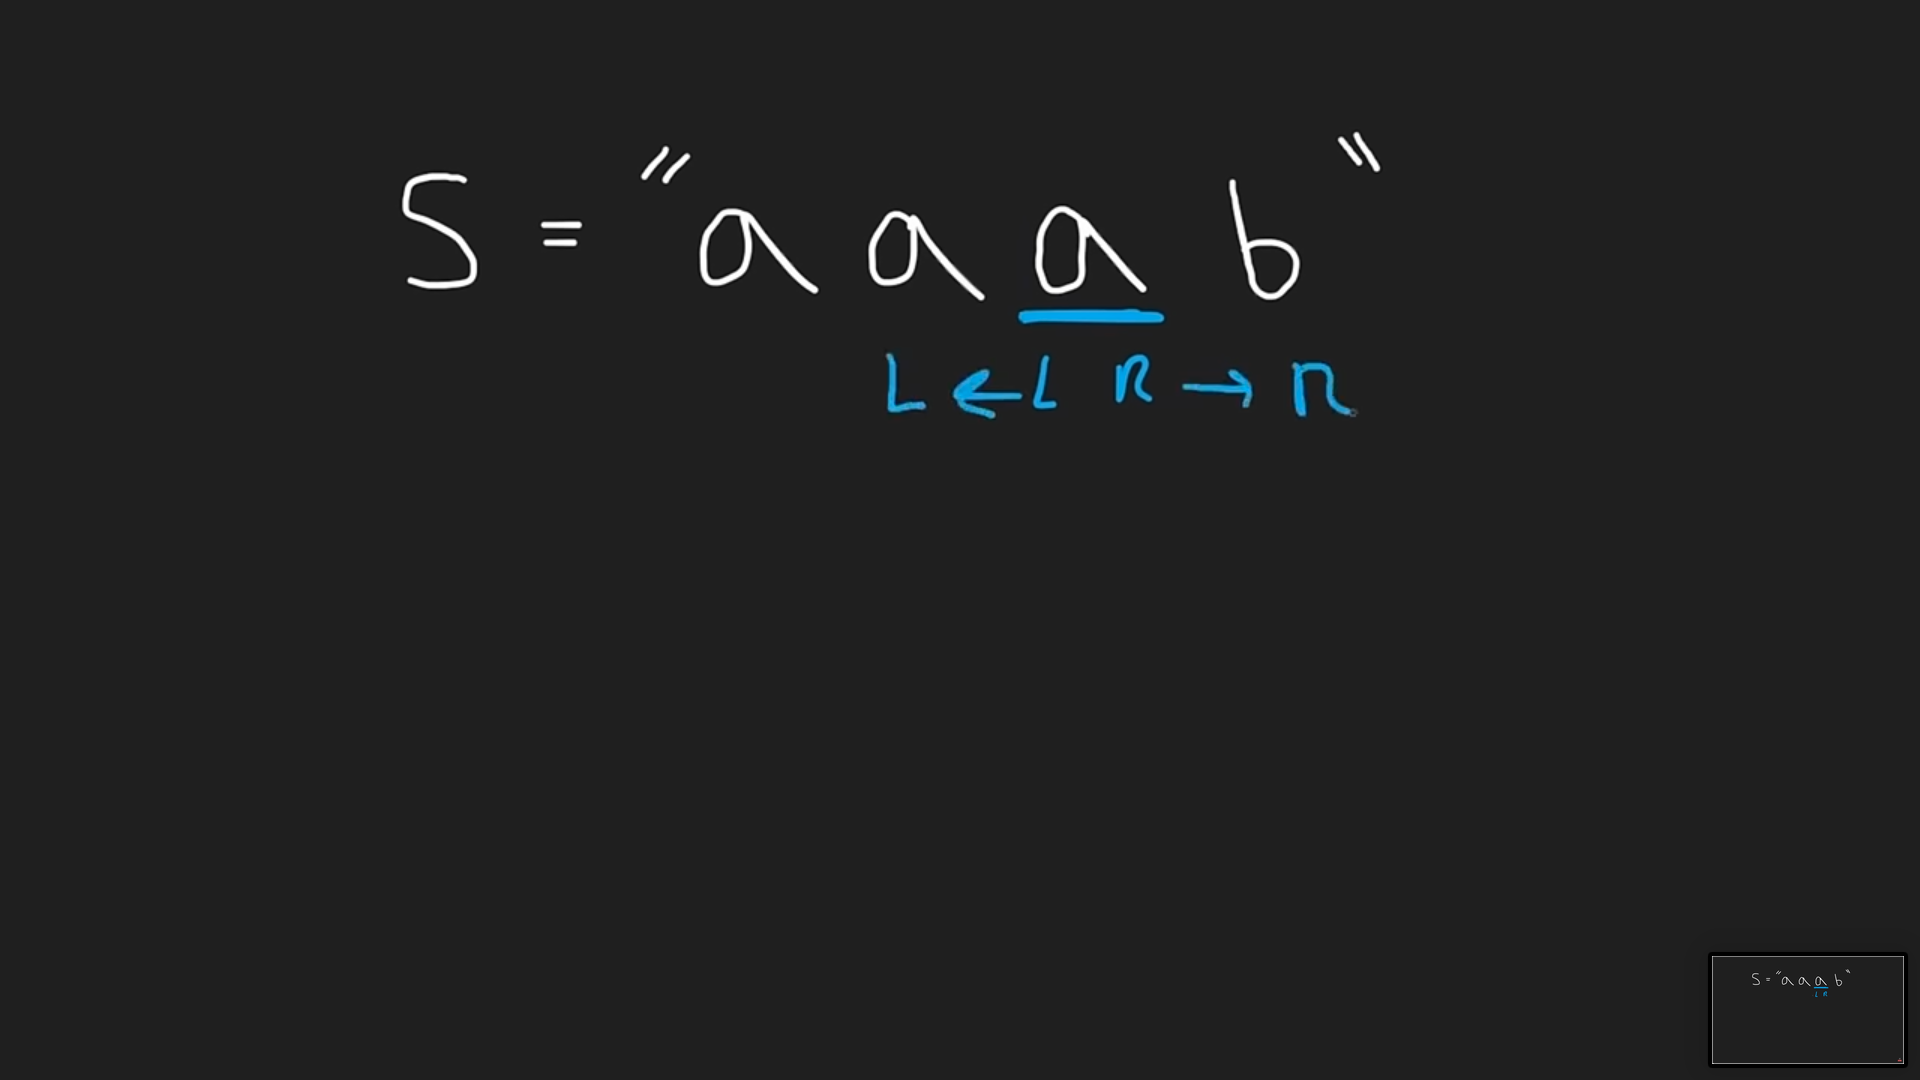 S = "a a a b"
L ← L R → R
S = "a a a b"
L R